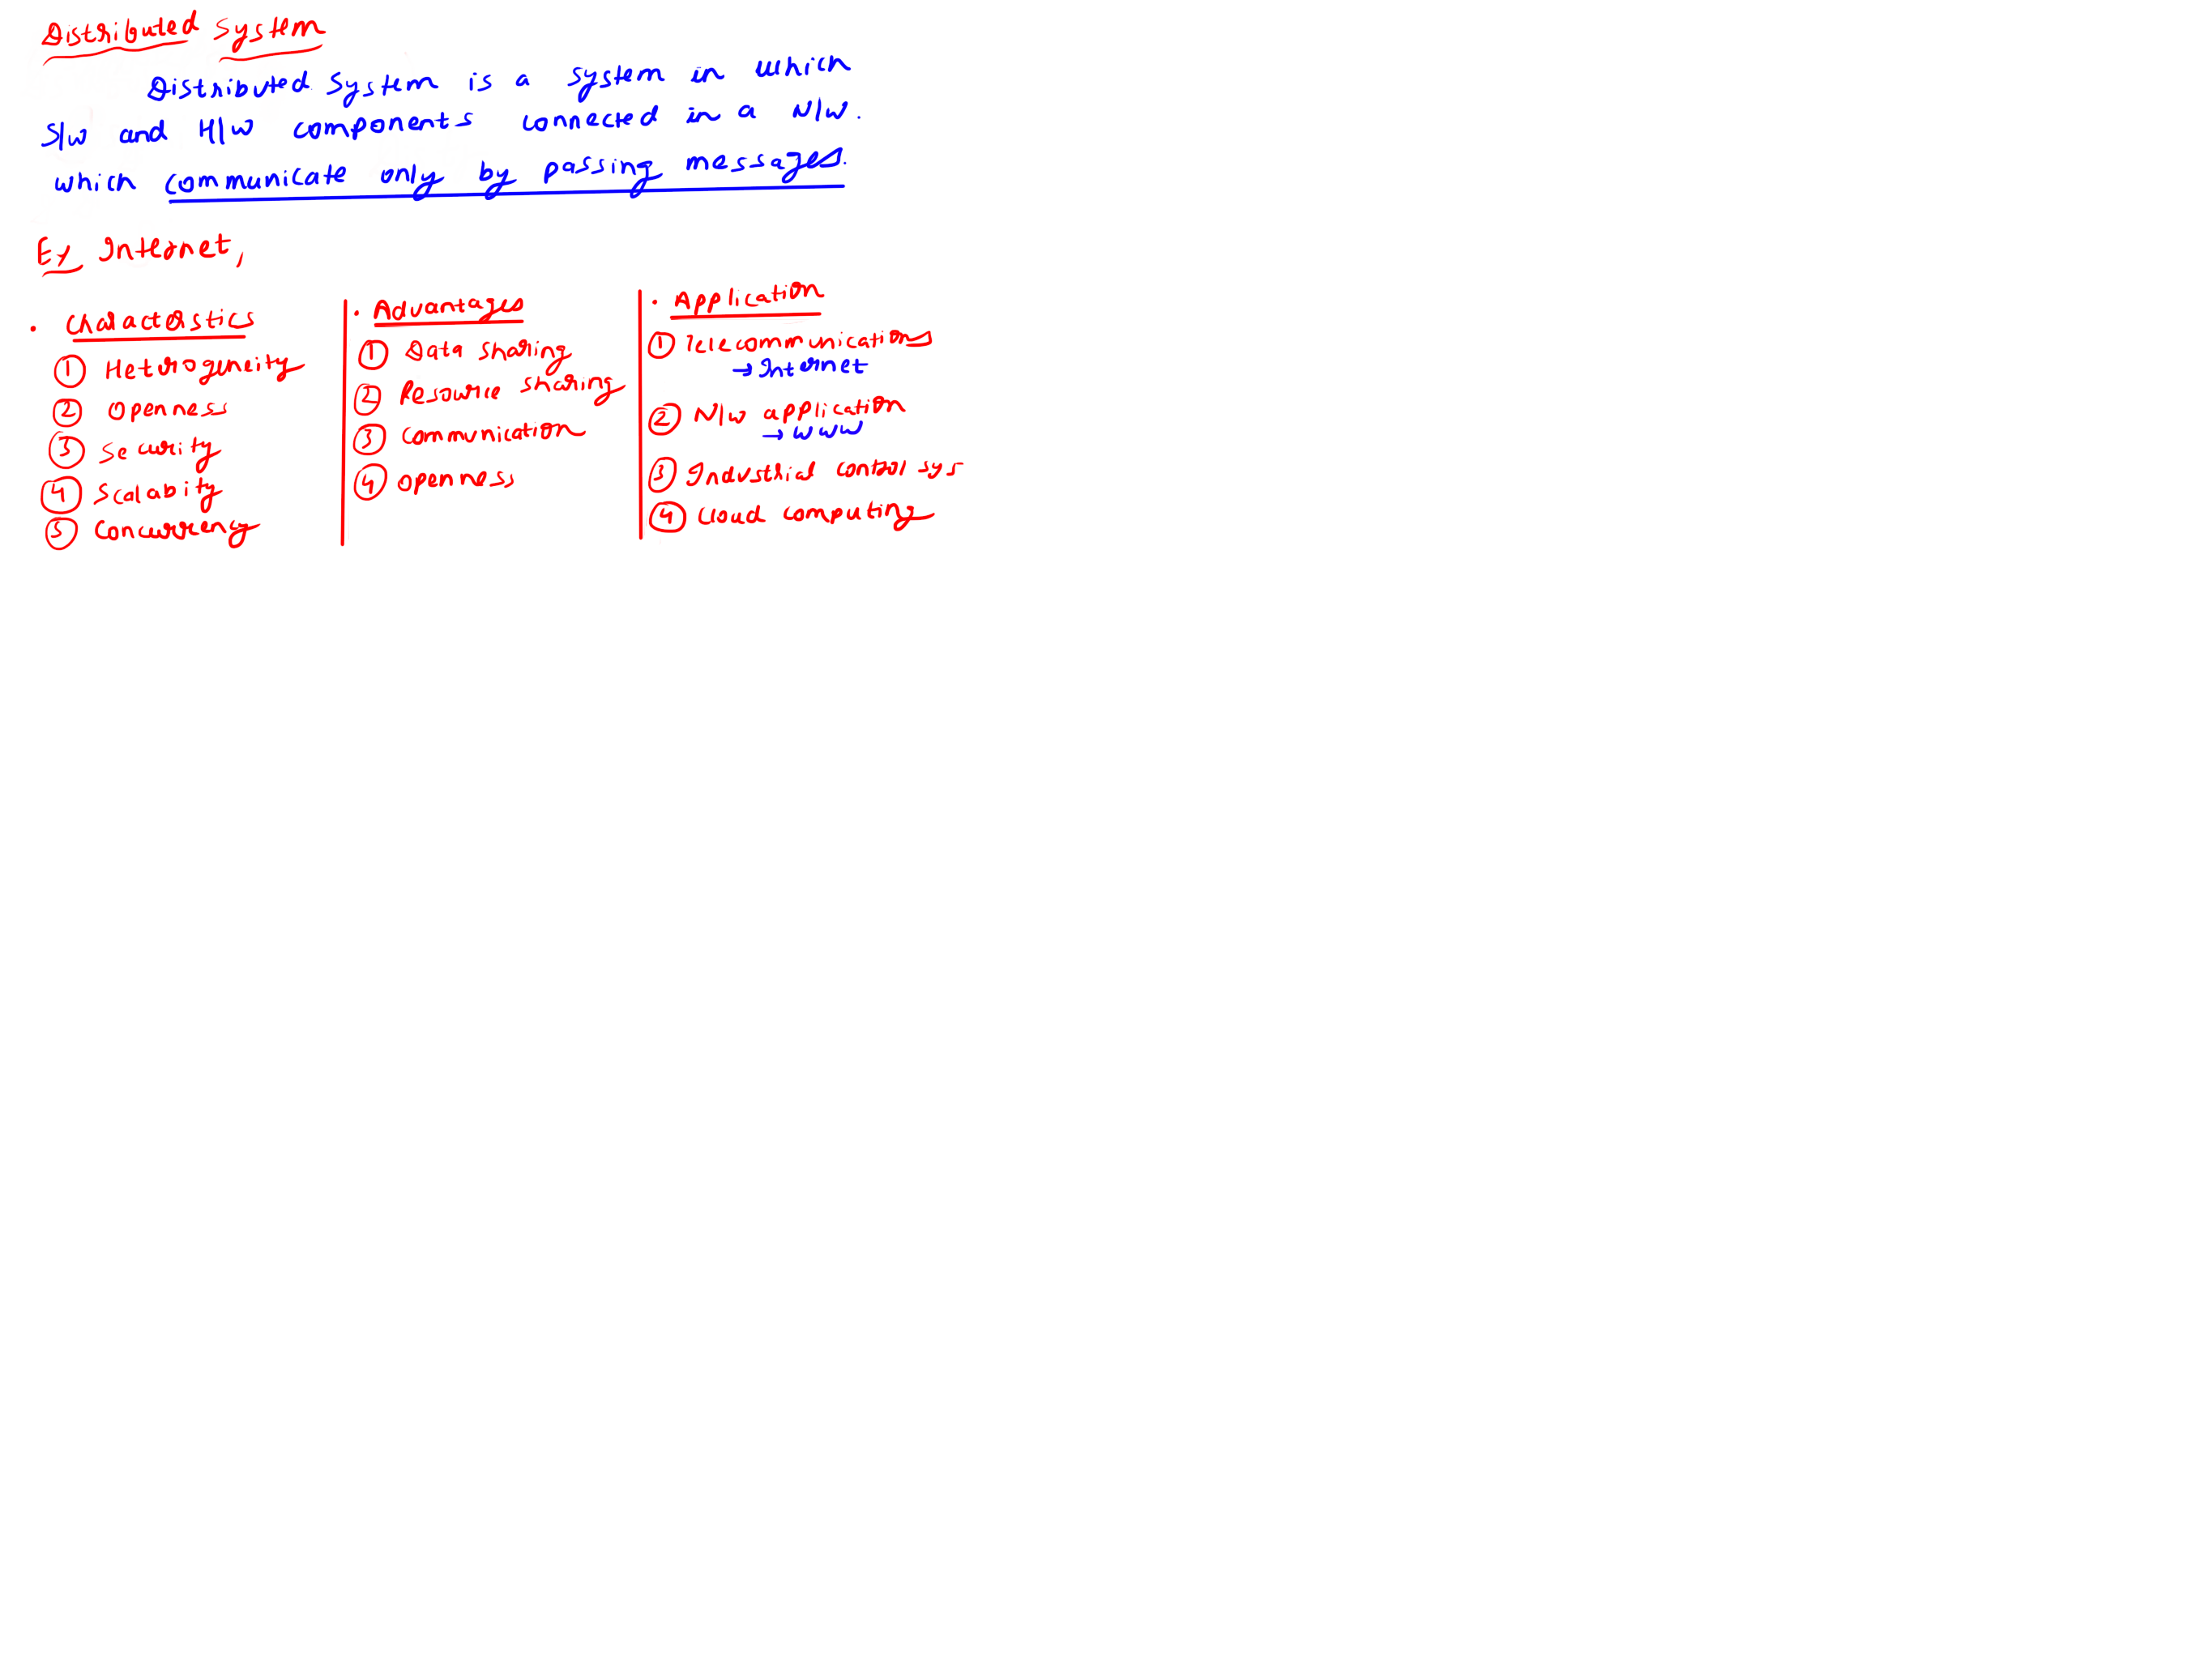 Distributed System
Distributed System is a system in which
S/w and H/W components connected in a N/W.
which communicate only by passing messages.
Ex Internet,
• Characterstics
① Heterogeneity
② Openness
③ Security
④ Scalabity
⑤ Concurrency
• Advantages
① Data sharing
② Resource sharing
③ Communication
④ openness
• Application
① Telecommunications
→ Internet
② N/w application
→ WWW
③ Industrial control sys
④ Cloud computing